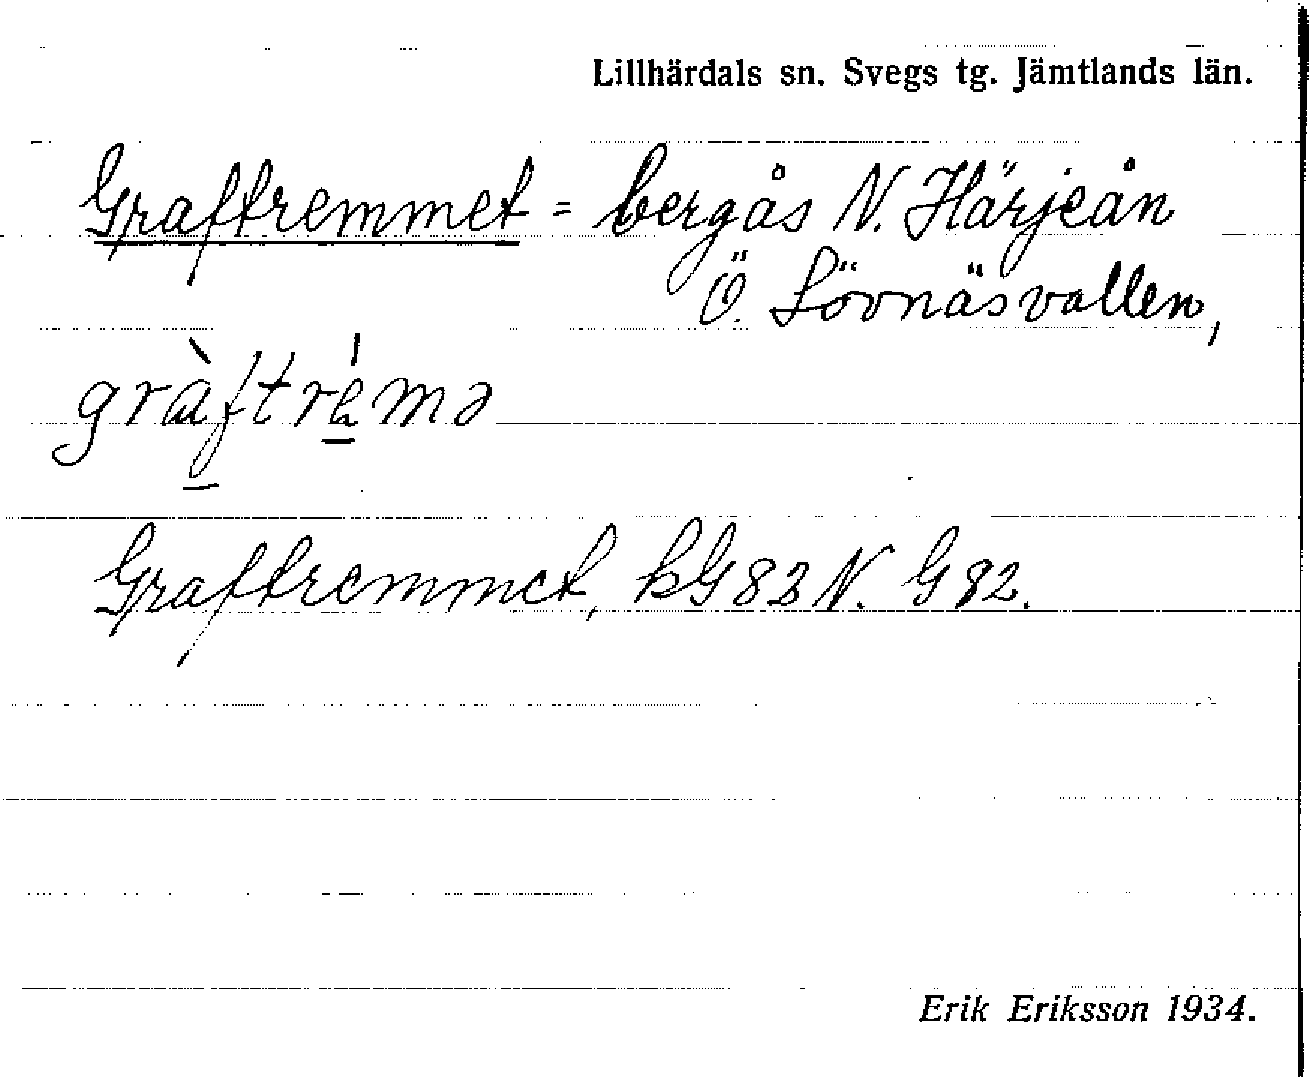 Lillhärdals sn. Svegs tg. Jämtlands län.
Graftremmet = bergås N. Härjeån
Ö. Lövnäsvallen,
gràftrémə
Graftremmet, kG 82 N. G 82.
Erik Eriksson 1934.